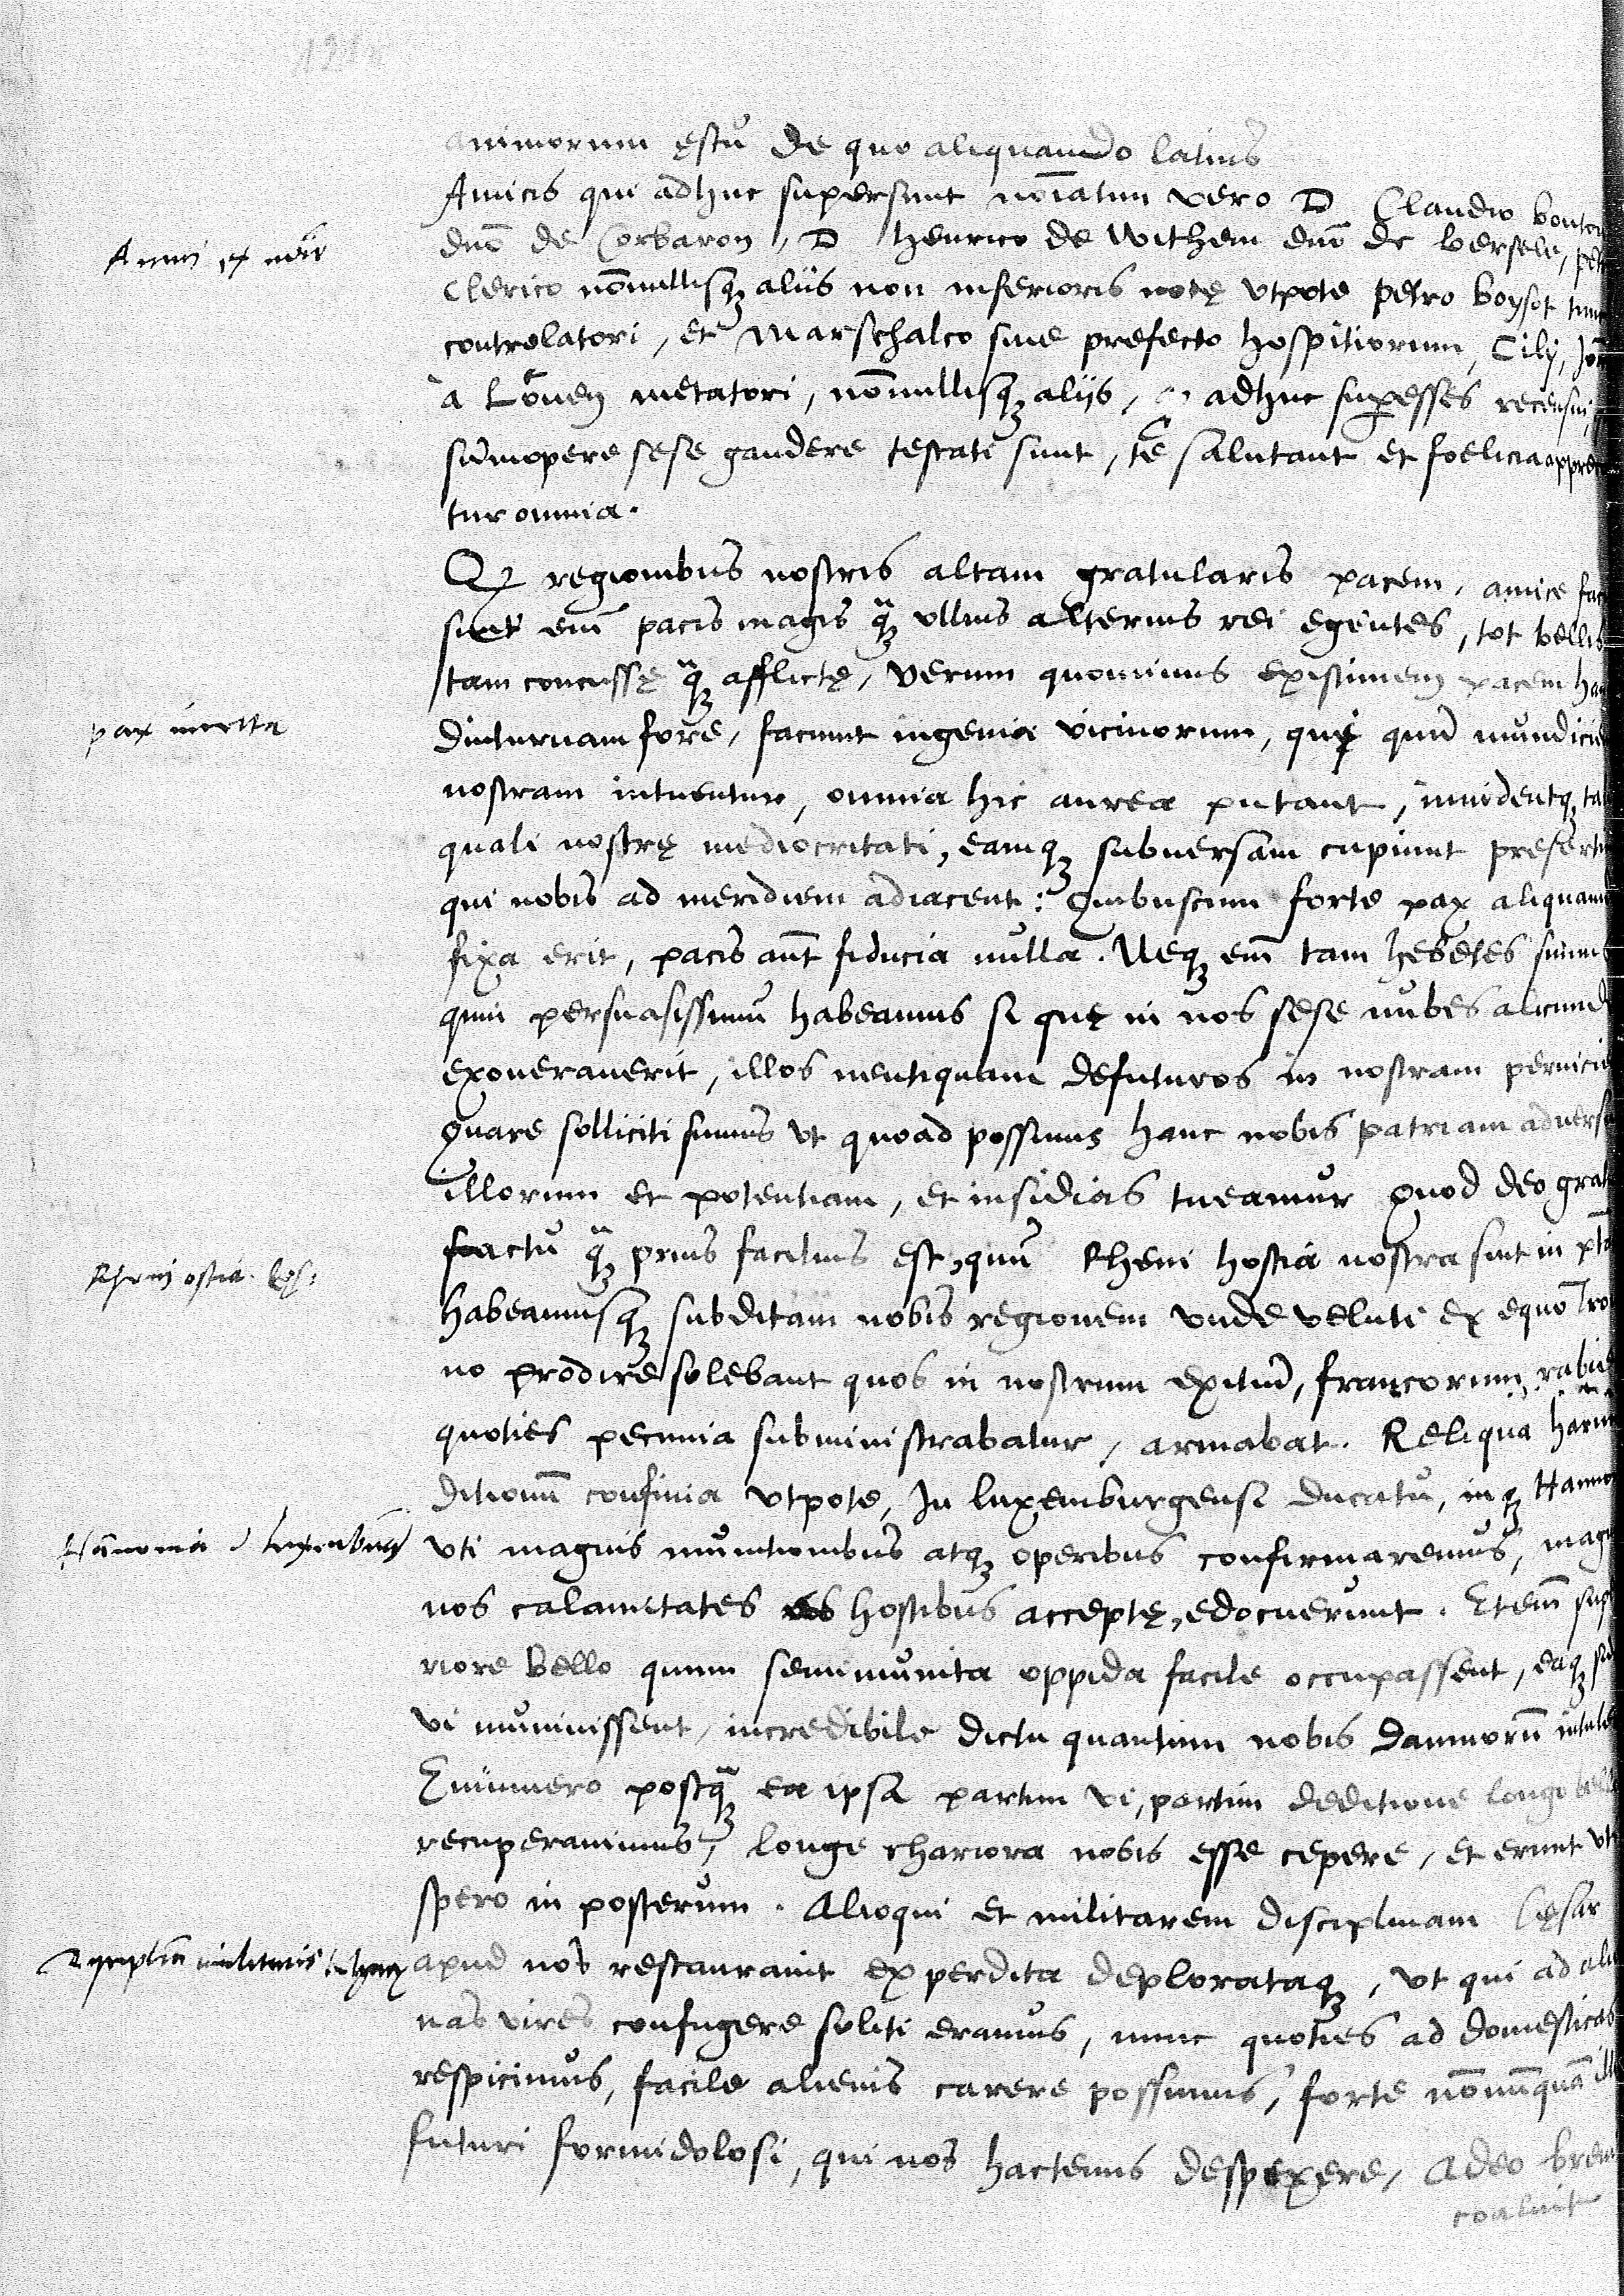 animorum ęstu de quo aliquando latius
Amicis qui adhuc supersunt nōīatim vero D Claudio bouton
Amici ex
dnō de Corbaron, D Henrico de Withem dnō de bersele,
Clerico nōnullisq; aliis non inferioris notę vtpote petro boysot
controlatori, et Marschalco siue prefecto hospitiorum, Cilij,
à Louen metatori, nōnullisq; alijs, adhuc supesses recensui,
sūmopere sese gaudere testati sunt, te salutant et foelicia appreca
tur omnia.
regionibus nostris altam gratularis pacem, amice
sunt eīm pacis magis q̄; ullius alterius rei egentes, tot bellis
tam concussę q̄; afflictę, verum quominus existimem pacem
pax incerta
diuturnam fore, faciunt ingenia vicinorum, qui quū mundiciem
nostram intuentur, omnia hic aurea putant, inuidentq;
quali nostrę mediocritati, eamq; subuersam cupiunt presertim
qui nobis ad meridiem adiacent: Quibuscum forte pax aliquando
fixa erit, pacis aūt fiducia nulla. Neq; eīm tam hebetes sumus
quin persuasissimū habeamus si quę in nos sese nubes alicunde
exonerauerit, illos neutiquam defuturos in nostram perniciem
Quare solliciti sumus vt quoad possimus hanc nobis patriam aduersus
illorum et potentiam, et insidias tueamur Quod deo gratia
factū q̄; prius facilius est, quū Rheni hostia nostra sint in
Rheni ostia.
habeamusq; subditam nobis regionem vnde veluti ex equo Troia
no prodire solebant quos in nostrum exitiū, francorum rabies
quoties pecunia subministrabatur, armabat. Reliqua harum
ditionū confinia vtpote, In luxemburgensi ducatu, inq; Hannonia
Hānonia
vti magnis munitionibus atq; operibus confirmaremus,
nos calamitates ab hostibus acceptę, edocuerunt. Eteīm supe
riore bello quum semimunita oppida facile occupassent, eaq;
vi muniuissent, incredibile dictu quantum nobis damnorū
Enimuero postq̄; ea ipsa partim vi, partim deditione longo bello
recuperauimus, longe chariora nobis esse cepere, et erunt vti
spero in posterum. Alioqui et militarem disciplinam Cęsar
militaris
apud nos restaurauit ex perdita deplorataq;, vt qui ad alie
nas vires confugere soliti eramus, nunc quoties ad domesticas
respicimus, facile alienis carere possimus, forte nōnunquā
futuri formidolosi, qui nos hactenus despexere, Adeo breui
coaluit